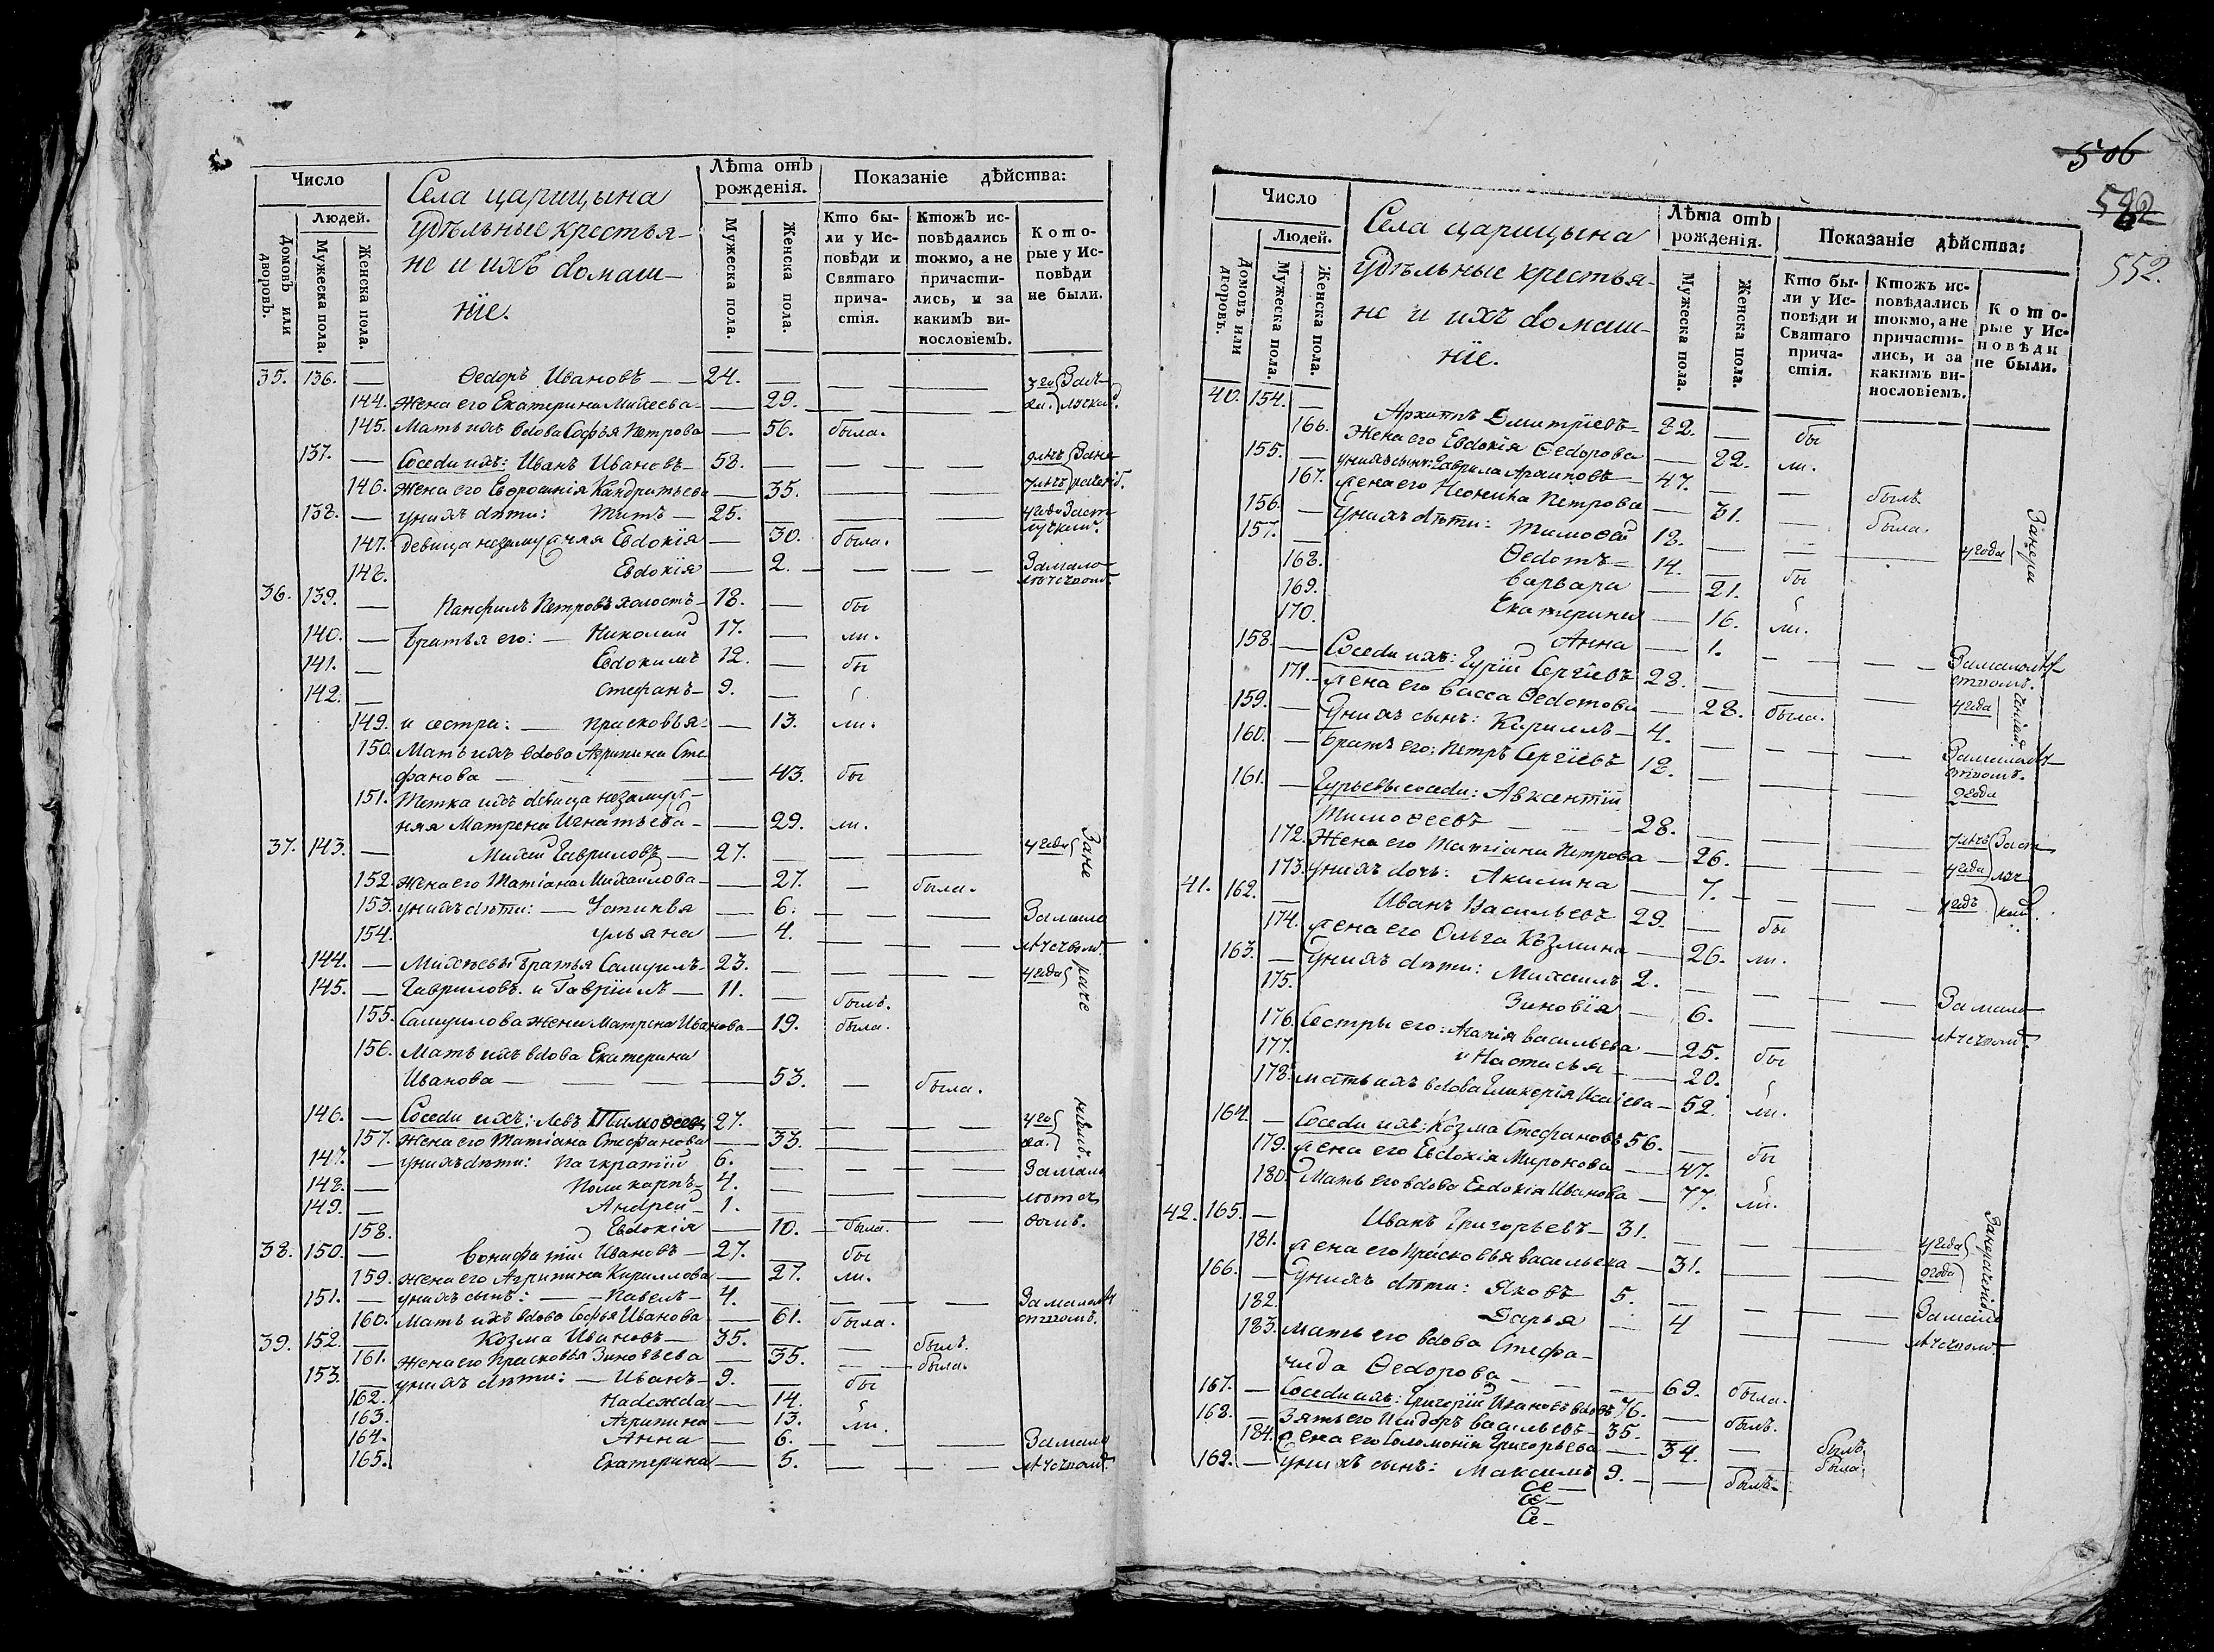 Число
Села царицына
Лѣта отъ рожденія.
Показаніе дѣйства:
Людей.
удѣльные крестья-
не и ихъ домаш-
ніе.
Домовъ или дворовъ.
Мужеска пола.
Женска пола.
Мужеска пола.
Женска пола.
Кто бы-
ли у Ис-
повѣди и
Святаго
прича-
стія.
Ктожъ ис-
повѣдались
токмо, а не
причасти-
лись, и за
какимъ ви-
нословіемъ.
Кото-
рые у Ис-
повѣди
не были.
35. 136. — Ѳедоръ Ивановъ — — 24. — — —
144. Жена его Екатерина Михеева — — 29. — — —
145. Мать ихъ вдова Софья Петрова — 56. была.
137. — Соседи ихъ: Иванъ Ивановъ — 58. — — —
146. Жена его Евфросинія Кандратьева — 35. — — —
138. — у нихъ дѣти: Титъ — 25. — — —
147. девица незамужняя Евдокія — 30. была.
148. Евдокія — 2. — — — Замало-
лѣтствомъ.
36. 139. — Панфилъ Петровъ холостъ — 18. — бы
140. — Братья его: — Николай 17. — ли.
141. — Евдокимъ 12. — бы
142. — Стефанъ — 9. —
149. и сестра: — Прасковья — — 13. ли.
150. Мать ихъ вдова Агрипина Сте-
фанова — — — — 43. бы
151. Тетка ихъ девица незамуж-
няя Матрена Игнатьева — — 29. ли.
37. 143. — Михей Гавриловъ — 27. — — — 4 года
152. Жена его Татіана Михайлова — — 27. — была.
153. у нихъ дѣти: — Устинья — 6. — — — Замало
154. Ульяна — 4. — — —
144. — Михѣевы братья Самуилъ — 23. — — — 4 года
145. — Гавриловъ. и Гавріилъ — 11. — былъ.
155. Самуилова жена Матрена Иванова — 19. была.
156. Мать ихъ вдова Екатерина
Иванова — — — — 53. — была.
Зане
раче
ніемъ.
146. — Соседи ихъ: Левъ Тимоѳеевъ 27. — — — 4 го
157. Жена его Татіана Стефанова — 33. — — — да.
147. — у нихъ дѣти: Панкратій 6. — — — Замало
148. — Поликарпъ — 4. — — — лѣтст
149. — Андрей — 1. — — — вомъ.
158. Евдокія — 10. — была.
38. 150. — Вонифатій Ивановъ — 27. — бы
159. Жена его Агрипина Кириллова — 27. ли.
151. — у нихъ сынъ: — Павелъ — 4. — — — Замалолѣ
160. Мать ихъ вдова Софья Иванова — 61. была. ствомъ.
39. 152. — Козма Ивановъ — 35. — — былъ.
161. Жена его Прасковья Зиновьева — 35. — была.
153. — у нихъ дѣти: — Иванъ — 9. — бы
162. Надежда — 14.
163. Агрипина — 13. ли.
164. Анна — 6. — — — Замало
165. Екатерина — 5. — — — лѣтствомъ.
506
552.
Число
Села царицына
Лѣта отъ рожденія.
Показаніе дѣйства:
Людей.
удѣльные крестья-
не и ихъ домаш-
ніе.
Домовъ или дворовъ.
Мужеска пола.
Женска пола.
Мужеска пола.
Женска пола.
Кто бы-
ли у Ис-
повѣди и
Святаго
прича-
стія.
Ктожъ ис-
повѣдались
токмо, а не
причасти-
лись, и за
какимъ ви-
нословіемъ.
Кото-
рые у Ис-
повѣди
не были.
40. 154. — Архипъ Дмитріевъ — 82. — бы
166. Жена его Евдокія Ѳедорова — 82. ли.
155. — у нихъ сынъ: Гаврила Архиповъ — 47. — — былъ
167. Жена его Неонила Петрова — 31. — была.
156. — У нихъ дѣти: Тимоѳей 18. — — — 4 года
157. — Ѳедотъ — 14. — бы
168. варвара — 21.
169. Екатерина — 16. ли.
170. Анна — 1. — — — Замалолѣт-
ствомъ.
158. — Соседи ихъ: Гурій Сергіевъ 28. — — — 4 года
171. Жена его Васса Ѳедотова — 28. была.
159. — У нихъ сынъ: Кириллъ — 4. — — — Замалолѣт-
ствомъ.
160. — Братъ его: Петръ Сергіевъ 18. — — — 2 года
161. — Гурьевы соседи: Авксентій
Тимоѳеевъ — — — 28. — — —
172. Жена его Татіана Петрова — 26. — — — 4 года
173. у нихъ дочь: Акилина — 7. — — — 1 годъ
41. 162. — Иванъ Васильевъ 29. — бы
174. Жена его Ольга Кузмина — 26. ли.
163. — У нихъ дѣти: Михаилъ 2. — — — Замало
175. Зиновія — 6. — — лѣтствомъ.
176. Сестры его: Агапія васильева — 25. бы
177. и Настасья — 20.
178. мать ихъ вдова Гликерія Исаіева — 52. ли.
164. — Соседи ихъ: Козма Стефановъ 56. — бы
179. Жена его Евдокія Миронова — 47.
180. Мать его вдова Евдокія Иванова — 77. ли.
42. 165. — Иванъ Григорьевъ — 31. — — — 4 года
181. Жена его Прасковья васильева — 31. — — 2 года
166. — У нихъ дѣти: Яковъ 5. — — — Замало
182. Дарья — 4 — — лѣтствомъ.
183. Мать его вдова Стефа-
нида Ѳедорова — — 69. была.
167. — Соседи ихъ: Григорій Ивановъ вдовъ 76. — былъ.
168. — Зять его Исидоръ васильевъ — 35. — — былъ
184. Жена его Соломонія Григорьева — 34. — была
169. — У нихъ сынъ: Максимъ 9. — былъ.
Се —
Се —
Се —